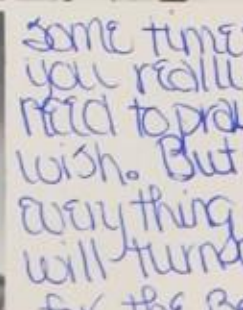 some time
you really
need to pray
wish. But
everything
will turn
for the Be